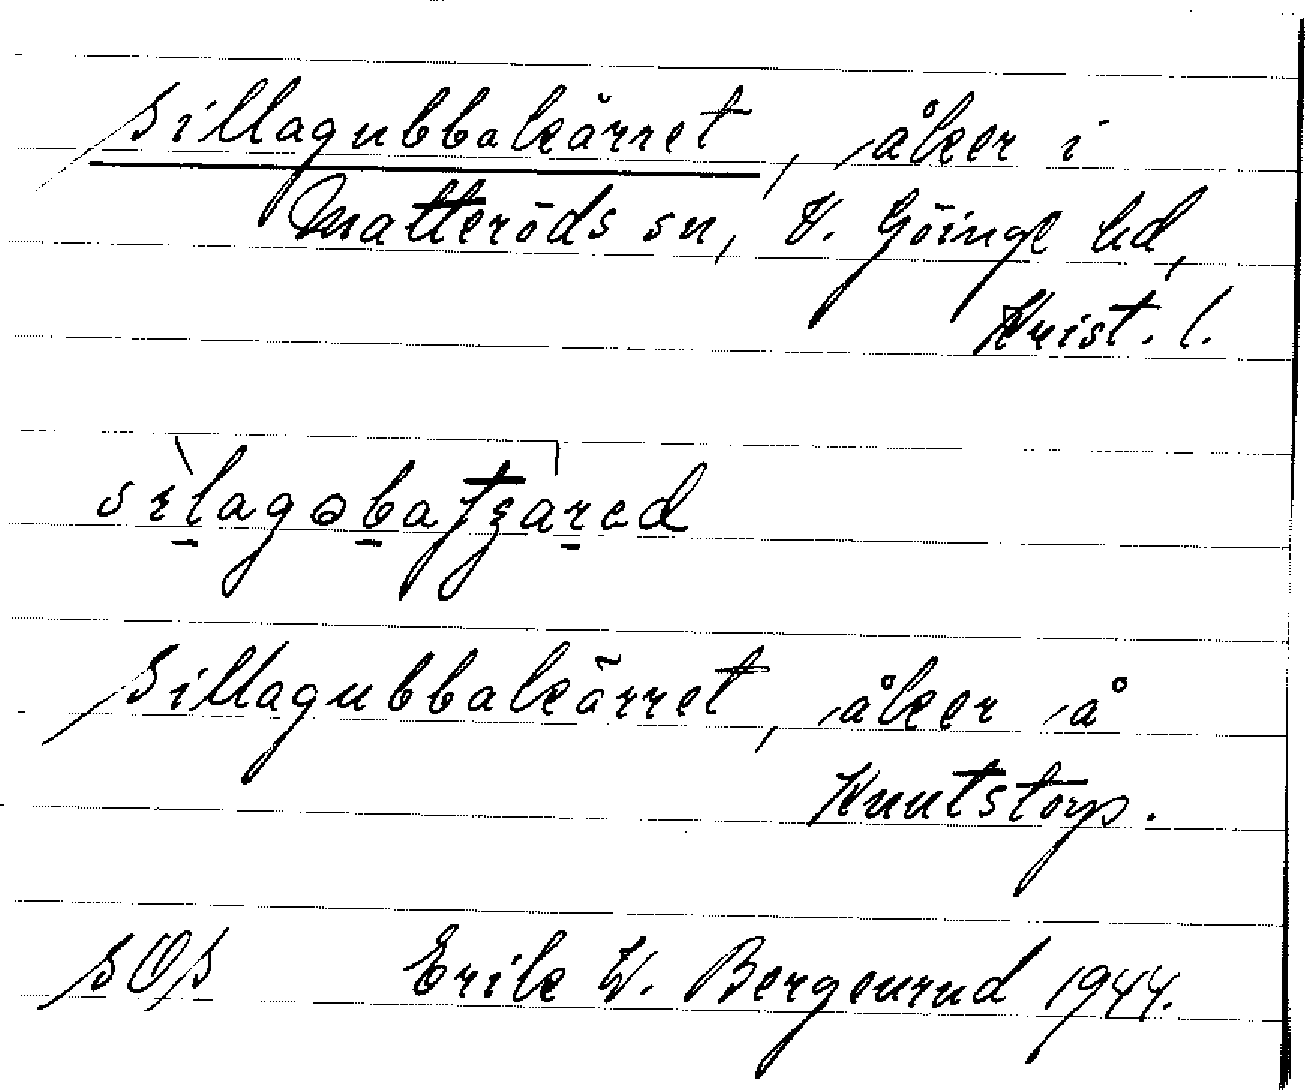 Sillagubbakärret, åker i
Matteröds sn, V. Göinge hd,
Krist. l.
Sillagubbakärret, åker å
Knutstorp.
SOS Erik W. Bergenrud 1944.